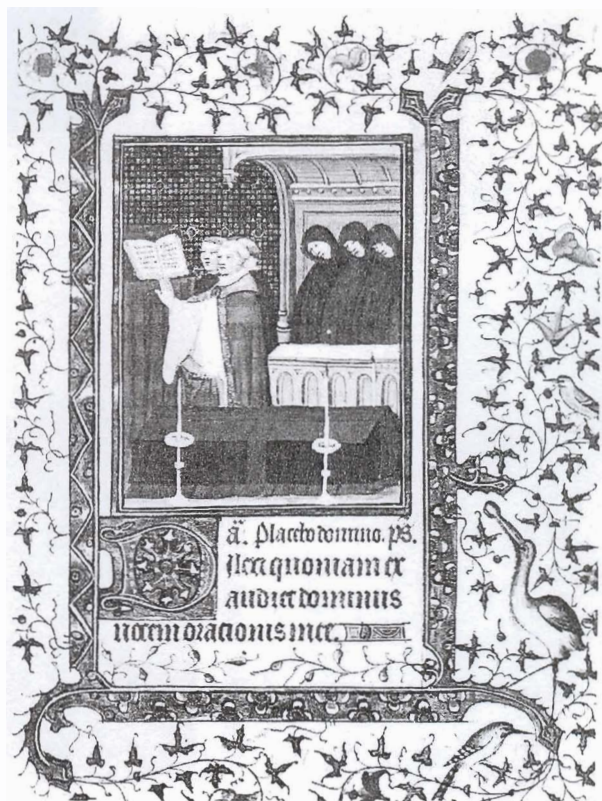 ã. Placebo domino. ps.
Dilexi quoniam ex
audiet dominus
vocem orationis mee.